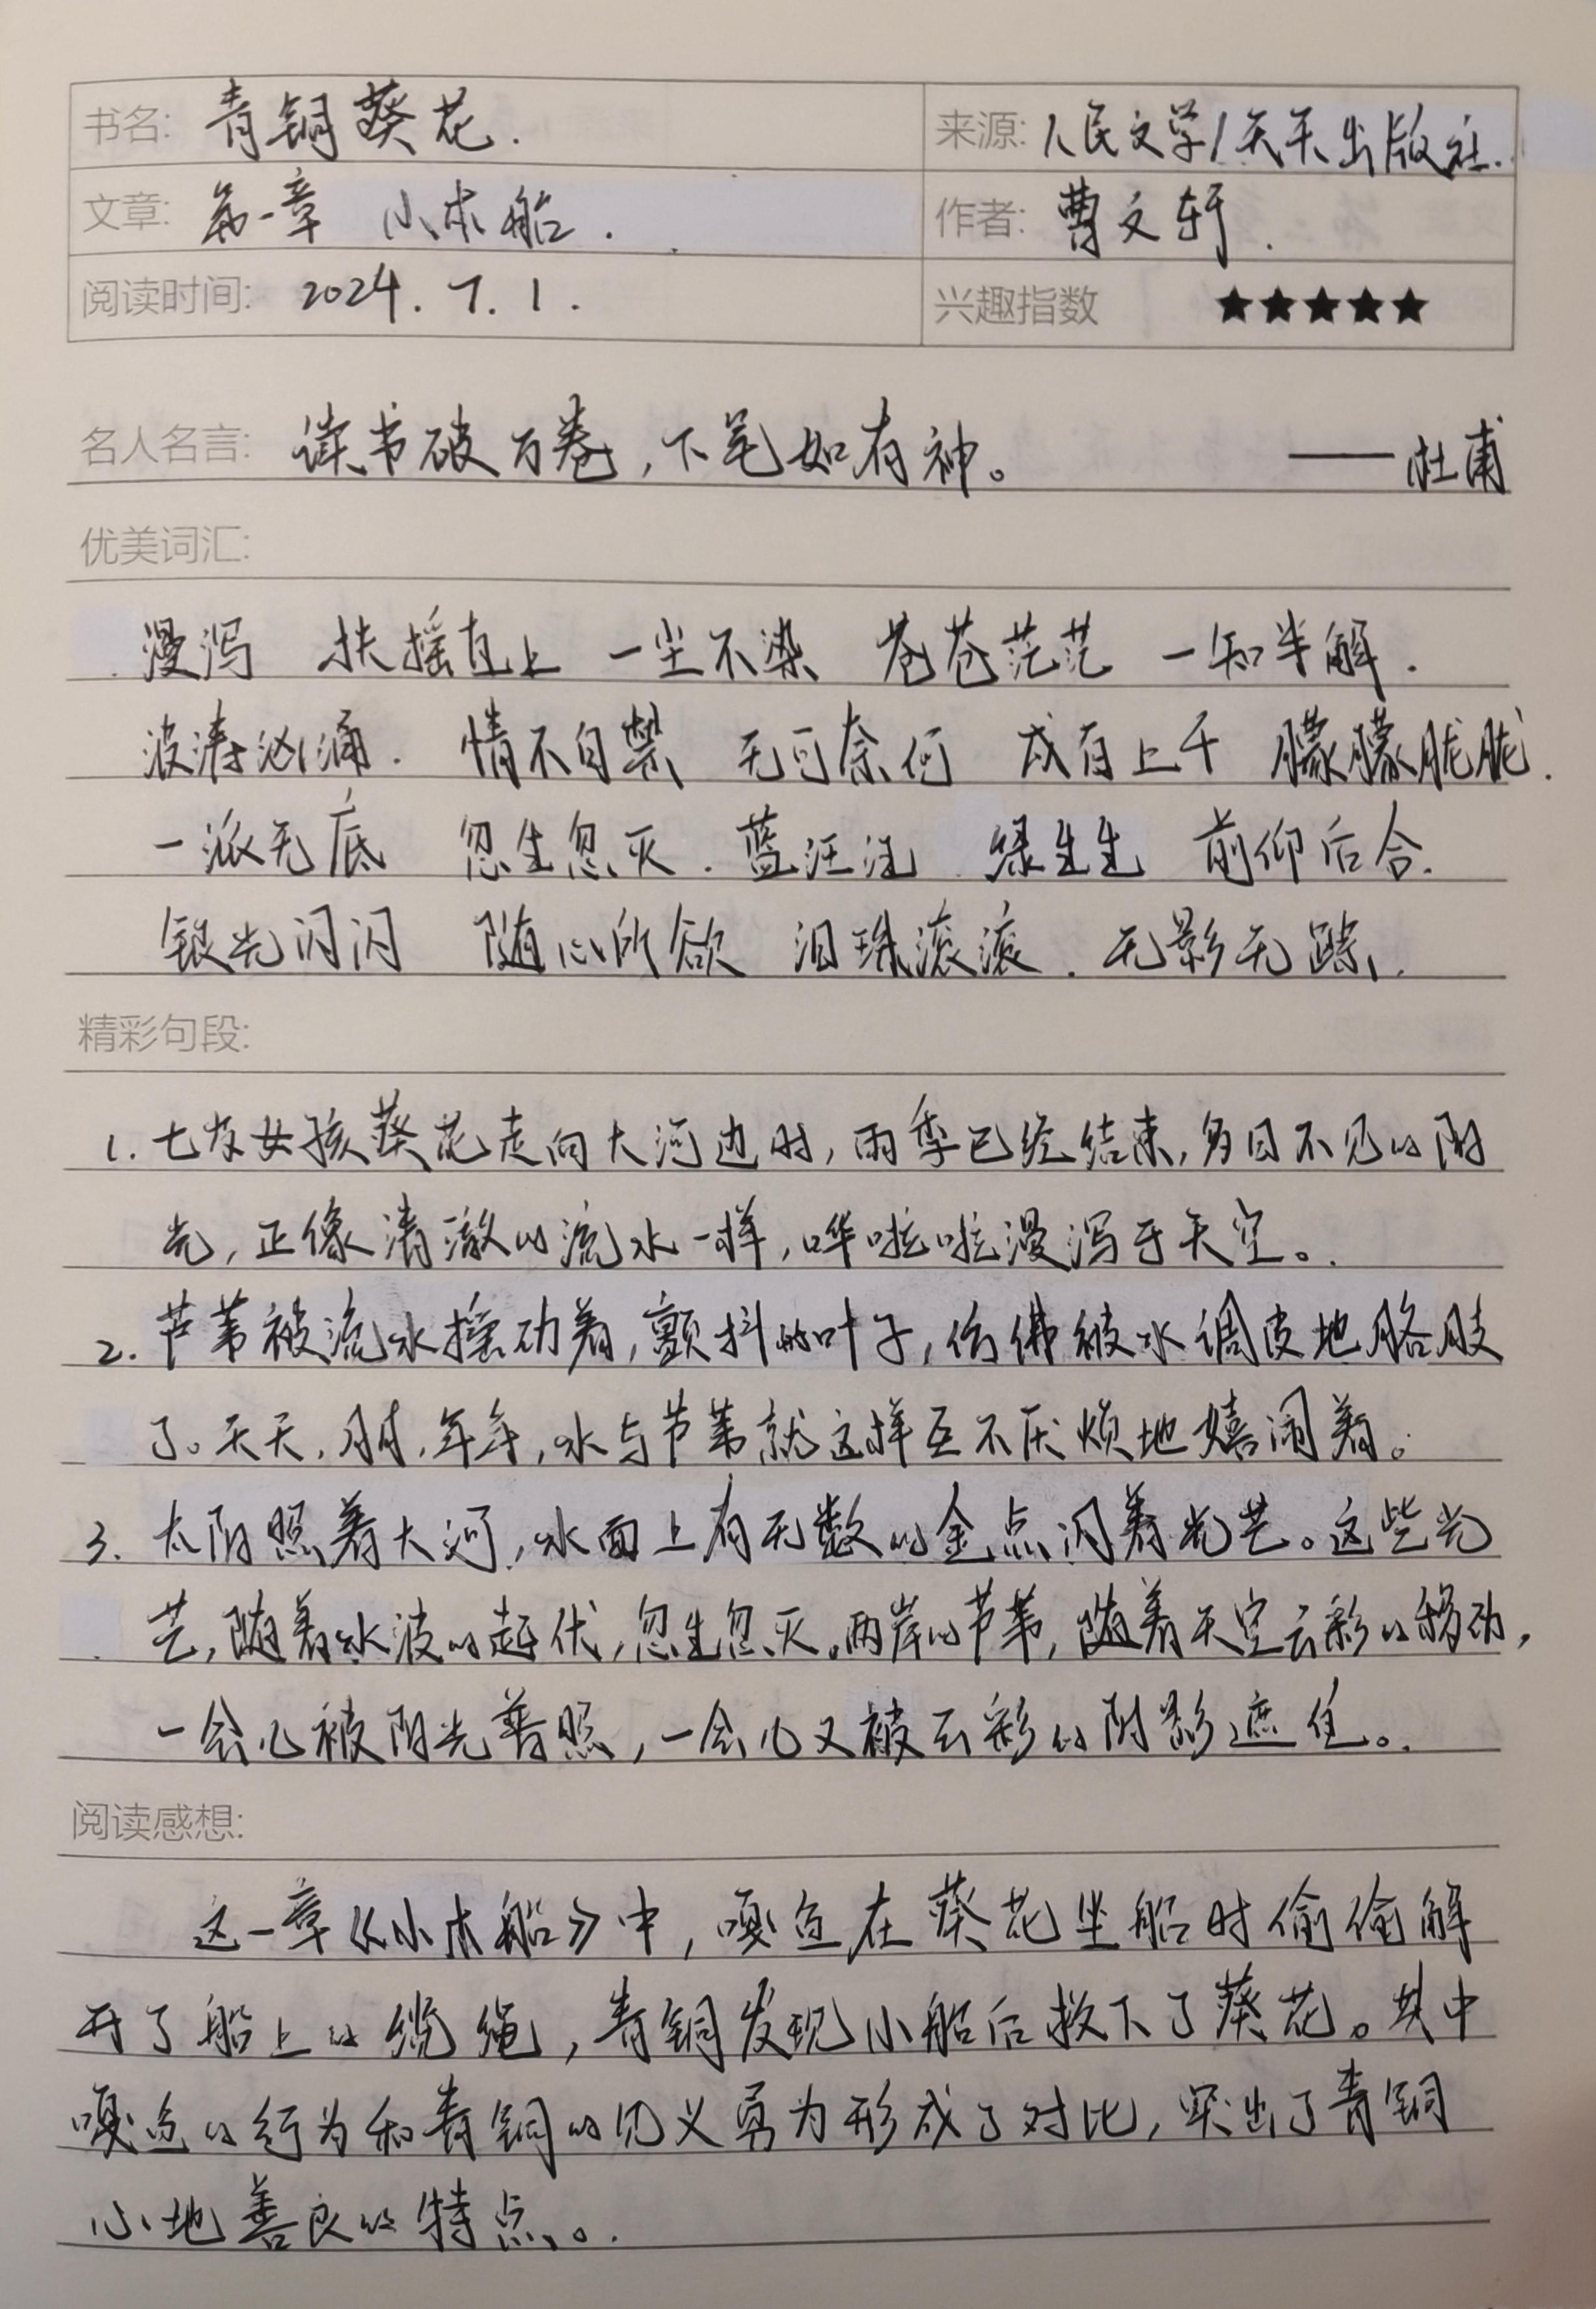 书名: 青铜葵花. 来源: 人民文学/天天出版社.
文章: 第一章 小木船. 作者: 曹文轩.
阅读时间: 2024.7.1. 兴趣指数 ★★★★★
名人名言: 读书破万卷,下笔如有神。 ——杜甫
优美词汇:
漫泻 扶摇直上 一尘不染 苍苍茫茫 一知半解.
波涛汹涌. 情不自禁 无可奈何 成百上千 朦朦胧胧.
一派无底 忽生忽灭. 蓝汪汪 绿生生 前仰后合.
银光闪闪 随心所欲 泪珠滚滚. 无影无踪.
精彩句段:
1. 七岁女孩葵花走向大河边时,雨季已经结束,多日不见的阳
光,正像清澈的流水一样,哗啦啦漫泻于天空。.
2. 芦苇被流水摇动着,颤抖的叶子,仿佛被水调皮地胳肢
了。天天,月月,年年,水与芦苇就这样互不厌烦地嬉闹着。
3. 太阳照着大河,水面上有无数的金点闪着光芒。这些光
芒,随着水波的起伏,忽生忽灭。两岸的芦苇,随着天空云彩的移动,
一会儿被阳光普照,一会儿又被云彩的阴影遮住。.
阅读感想:
这一章《小木船》中,嘎鱼在葵花坐船时偷偷解
开了船上的缆绳,青铜发现小船后救下了葵花。其中
嘎鱼的行为和青铜的见义勇为形成了对比,突出了青铜
心地善良的特点。.